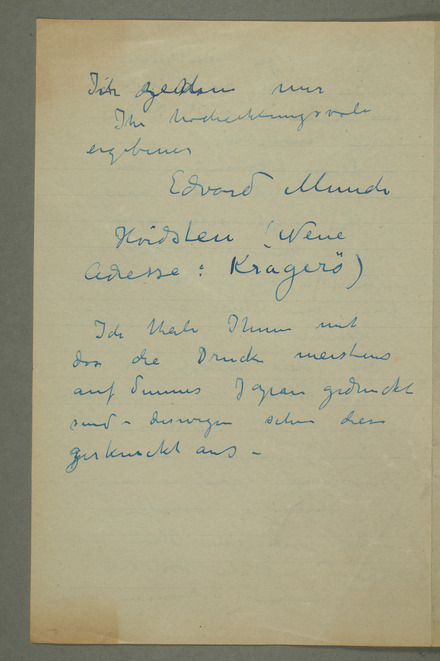 Ich zeichne mir
Ihr hochachtungsvoll
ergebener
Edvard Munch
Hvidsten (Neue
Adresse: Kragerö)
Ich theile Ihnen mit
dass die Drucke meistens
auf dünnes Japan gedruckt
sind – deswegen sehen diese
zerknickt aus –